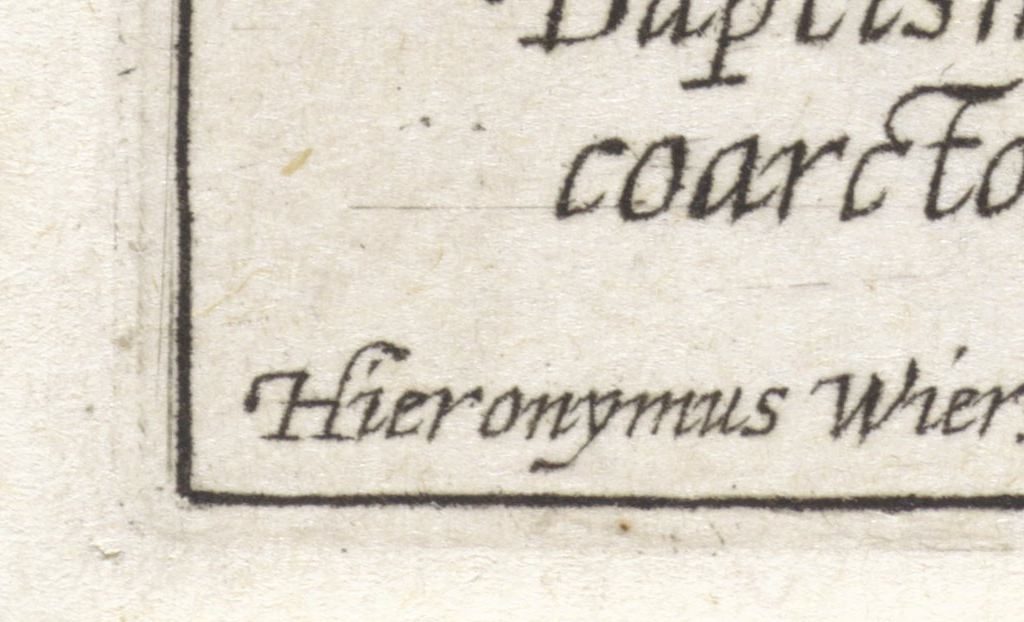 Baptism
coarcto
Hieronymus Wier